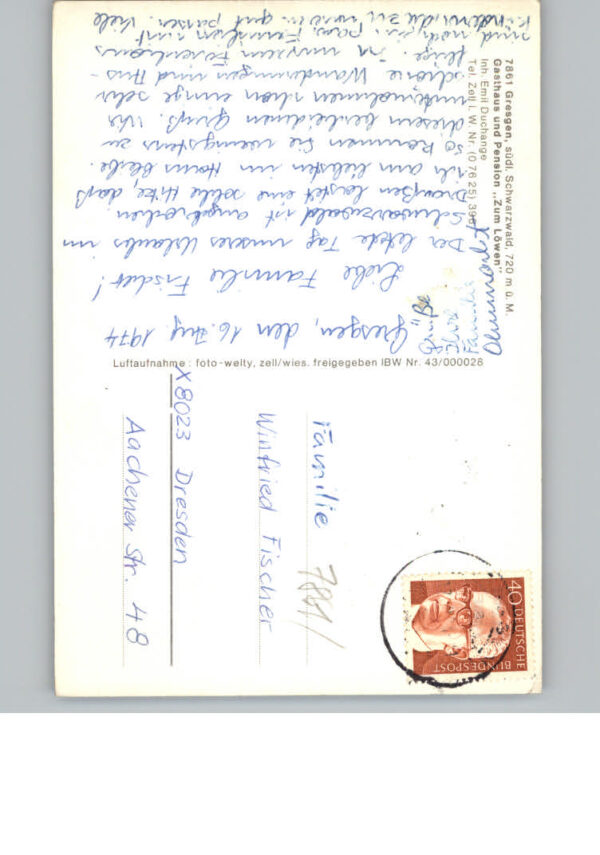 7861 Gresgen, südl. Schwarzwald, 720 m ü. M.
Gasthaus und Pension „Zum Löwen"
Inh. Emil Duchange
Tel. Zell i. W. Nr. (0 76 25) 396
Gresgen, den 16. Aug. 1974
Liebe Familie Fischer!
Der letzte Tag unseres Urlaubs im
Schwarzwald ist angebrochen.
Draußen lastet eine solche Hitze, daß
ich am liebsten im Haus bleibe.
So kommen Sie wenigstens zu
diesem bescheidenen Gruß. Wir
unternahmen schon einige sehr
schöne Wanderungen und Aus-
flüge. In unserem Ferienhaus
sind noch Familien mit
Kindern, die zu uns gut passen. Viele
Grüße
Ihre
Familie
Luftaufnahme: foto-welty, zell/wies. freigegeben IBW Nr. 43/000028
Familie
Winfried Fischer
X8023 Dresden
Aachener Str. 48
7881/
40 DEUTSCHE
BUNDESPOST